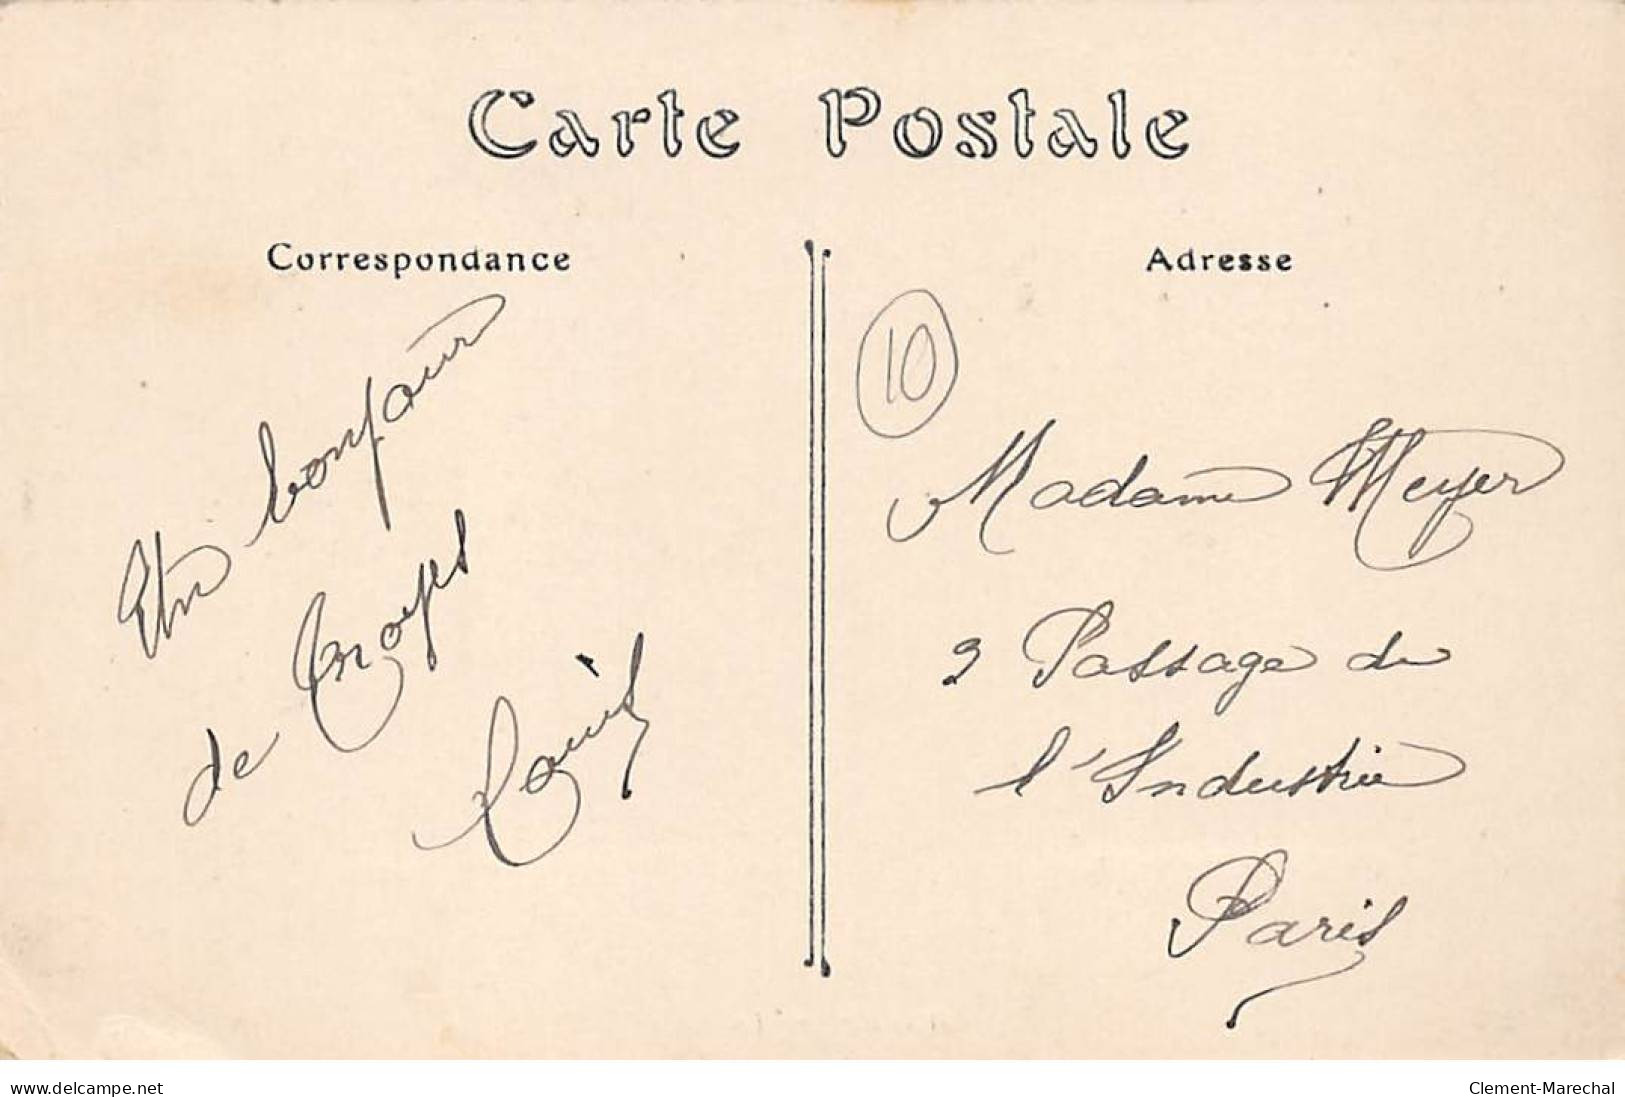 Carte Postale
Correspondance
Un bonjour
de Troyes
Louis
Adresse
10
Madame Meyer
9 Passage de
l'Industrie
Paris
www.delcampe.net
Clement-Marechal